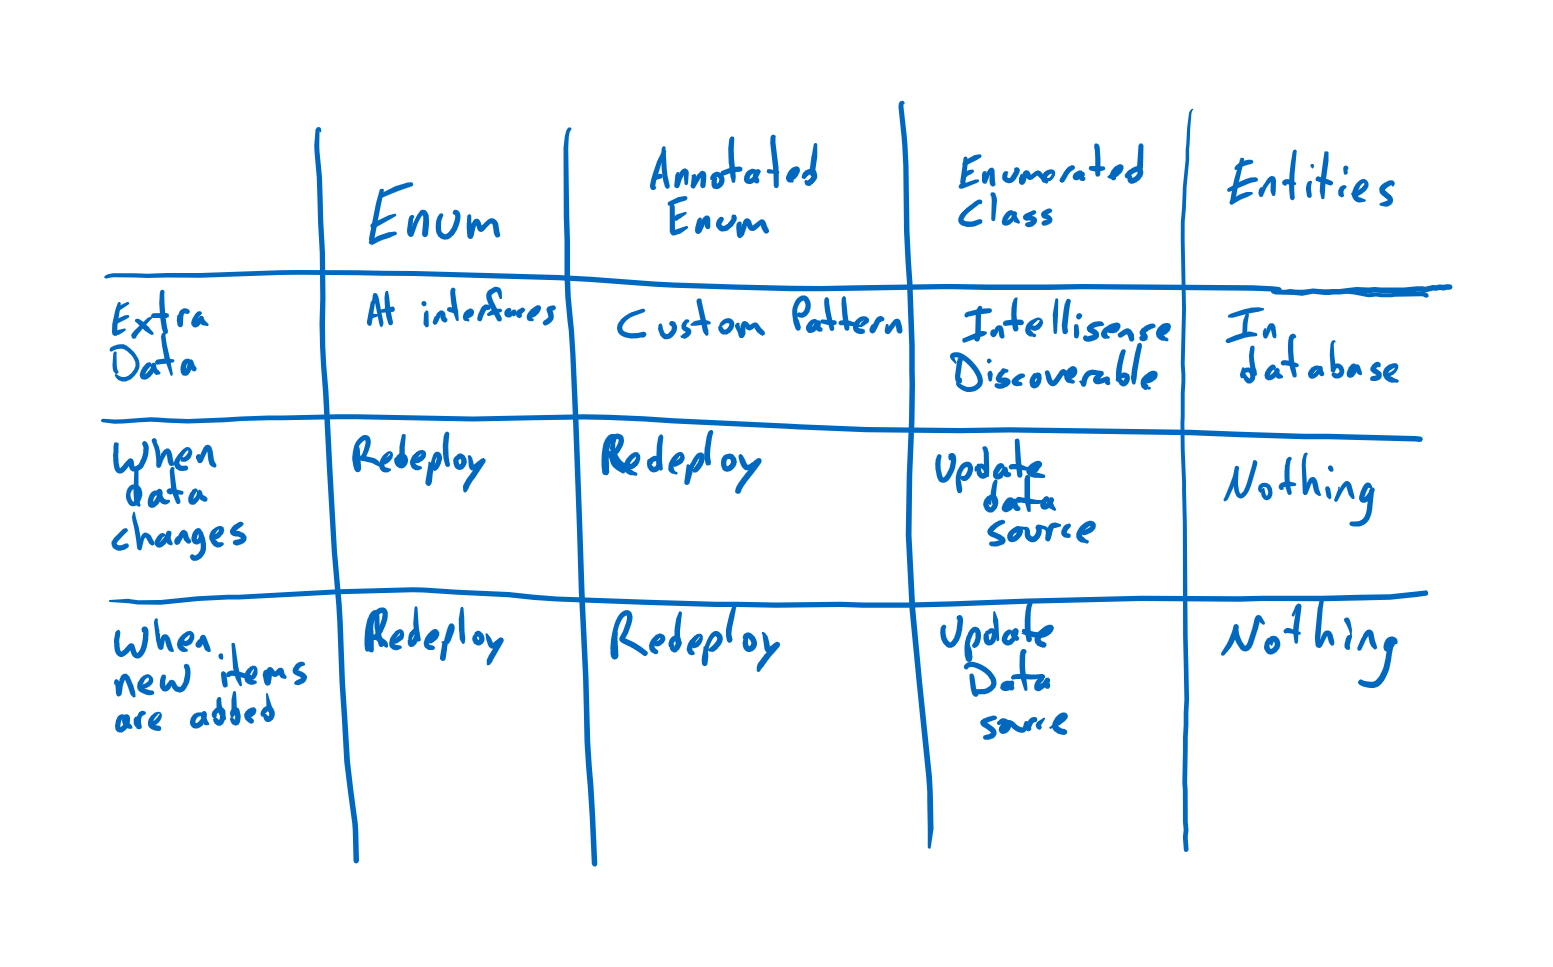 Enum
Annotated
Enum
Enumorated
Class
Entities
Extra
Data
At interfaces
Custom Pattern
Intellisense
Discoverable
In
database
When
data
changes
Redeploy
Redeploy
Update
data
source
Nothing
When
new items
are added
Redeploy
Redeploy
Update
Data
source
Nothing